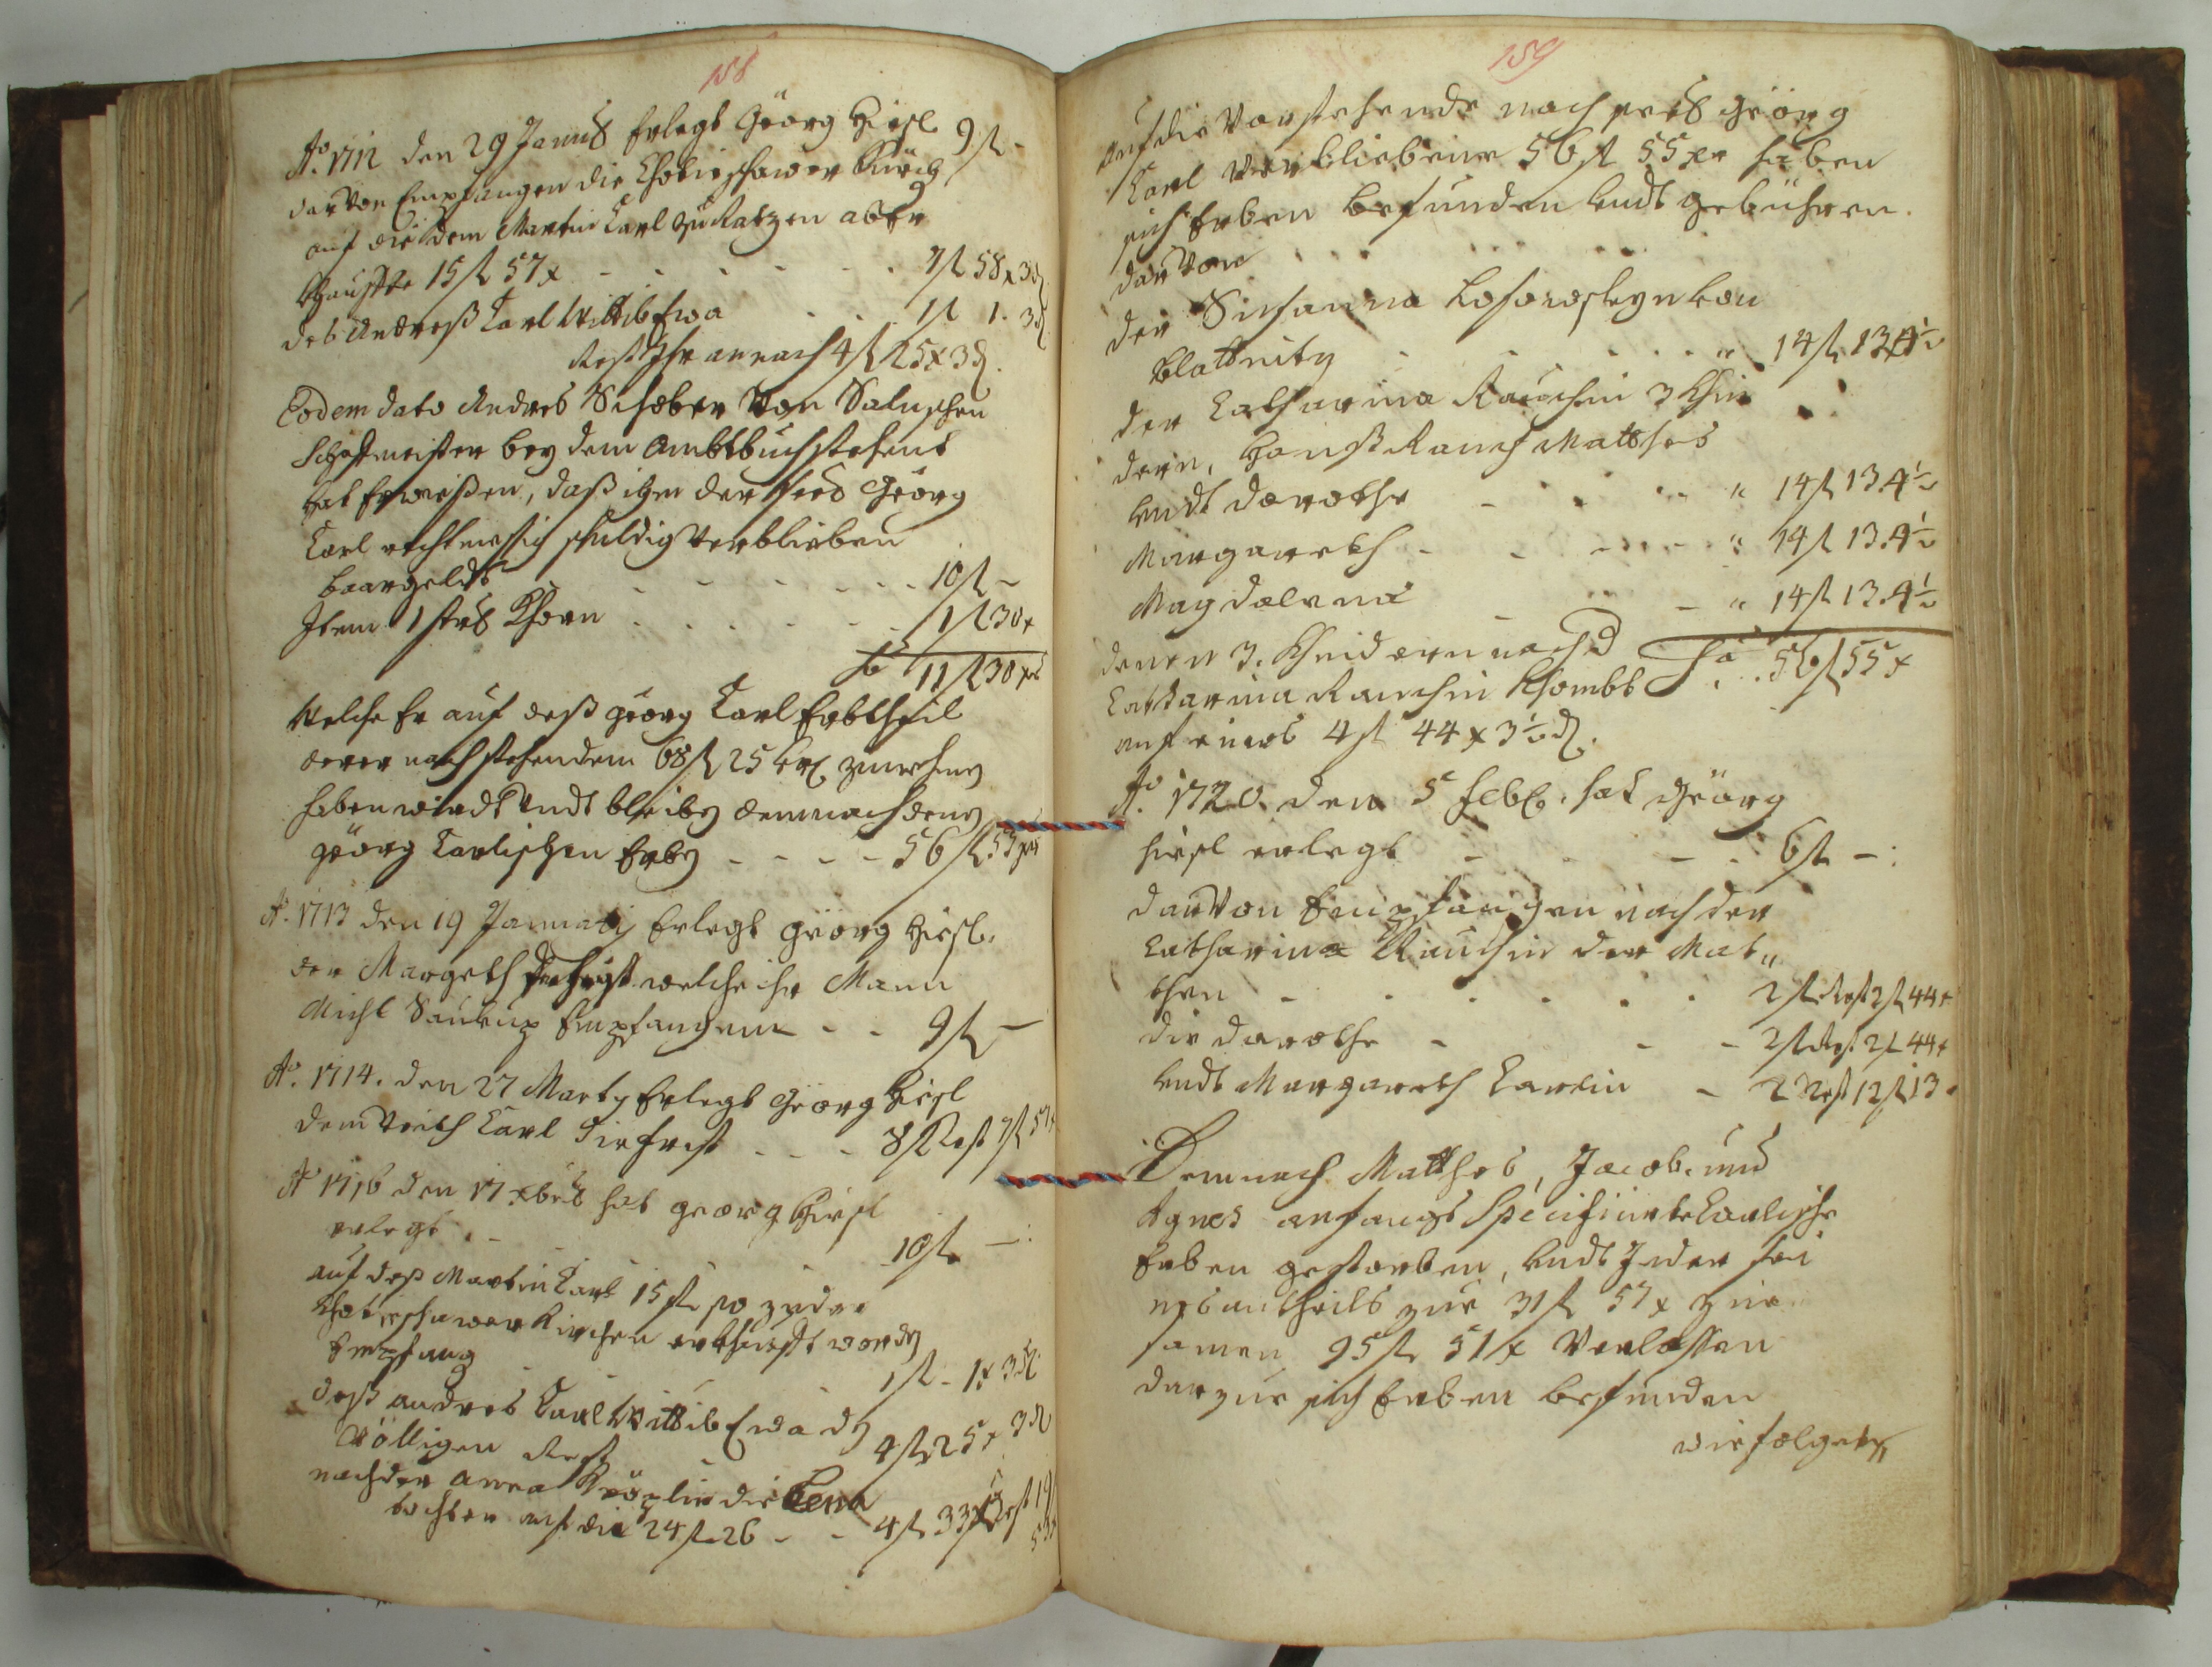 158
Ao. 1712 den 29 Januar Erlegt Geörg Hiesl 9 fl -
darvon Empfangen die Chotieschawer Kürch
auf die dem Martin Carl zu Ratzen aber
khauffte 15 fl 57 x - - - 3 fl 58 x 3 d
des Andreß Carl Wittib Ewa - - 1 fl 1. 3 d
Rest Ihr annach 4 fl 25 x 3 d.
Eodem dato Andres Schober Von Saluschen
Schafmeister bey dem Ambtbuch stehent
hat Erwießen, daß ihm der Geörg
Carl rechtmessig schuldig Verblieben
baargeldt - - - - 10 fl -
Item 1 Khorn - - - - 1 fl 30 x
11 fl 30 xr
Welche Er auf deß Georg Carl Erbtheil
deren nach stehendem 68 fl 25 zunehmen
haben wirdt Undt bleiben demnach denen
Geörg Carlischen Erben - - - - 56 fl 55 xr
Ao. 1713 den 19 Januarij Erlegt Geörg Hiesl.
der Margeth welche ihr Mann
Michl Saukup Empfangen - - 9 fl -
Ao. 1714. den 27 Marty Erlegt Georg Hiesl
dem Veith Carl die frist - - - 8 fl Rest 7 fl 57 x
Ao 1716 den 17 xbris hat georg Hiesl
erlegt. - 10 fl -:
auf deß Martin Carl 15 fl so zu der
Chotieschawer Kirchen erkhaufft worden
Empfang - 1 fl - 1 x 3 d
deß andres Carl Wittib Ewa den
Völligen Rest 4 fl 25 x 3 d
nach der anna die Lena
tochter auf die 24 fl 26 - - 4 fl 33 x Rest 19
53 x
159
Auf die Vorstehende nach Geörg
Carl Verbliebene 56 fl 55 xr haben
sich Erben befunden undt gebühren.
darVon
der Susanna von
Blattnitz - - - " 14 fl 13. 4½
der Catharina Rauchin 3 Khin
dern, Hanß Rauch Matthes
undt dorothe - - - " 14 fl 13. 4½
Margareth - - - - " 14 fl 13. 4½
Magdalena - - - " 14 fl 13. 4½
denen 3. Kheidern nach d Sa. 56 fl 55 x
Catharina Rauchin Khombt
auf eines 4 fl 44 x 3½ d.
Ao 1720. den 5 Febr. hat Geörg
hiesl erlegt - - - 6 fl -:
darVon Empfangen nach der
Catharina Rauchin der Mat„
thes - - - - 2 fl Rest 2 fl 44 x
die dorothe - - - 2 fl Rest 2 fl 44 x
undt Margareth Carlin - 2 Rest 12 fl 13
Demnach Matthes, Jacob, und
Agnes anfangs Specificirte Carlische
Erben gestorben, undt Jeder sei
nes antheils zue 31 fl 57 x zue
samen 95 fl 51 x Verlassen
darzue sich Erben befunden
wie folget